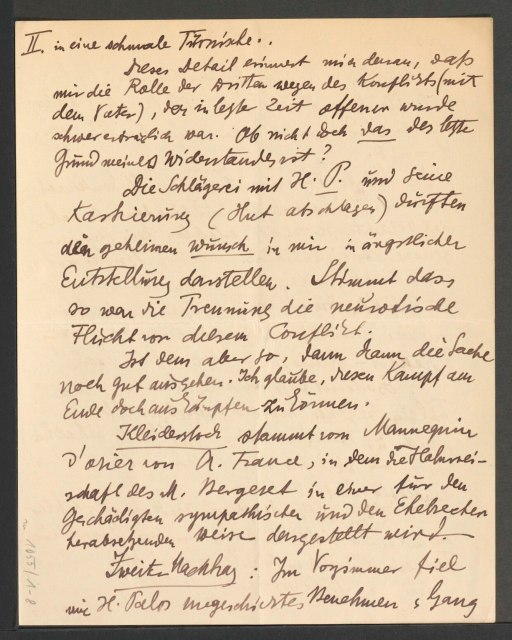 II. in eine schmale Türnische..
Dieses Detail erinnert mich daran, daß
mir die Rolle der Dritten wegen des Konflikts (mit
dem Vater), der in letzte Zeit offener wurde
schwer erträglich war. Ob nicht doch das der letzte
Grund meines Widerstandes ist?
Die Schlägerei mit H. P. und seine
Kastrierung (Hut abschlagen) dürften
den geheimen Wunsch in mir in ängstlicher
Entstellung darstellen. Stimmt dass
so war die Trennung die neurotische
Flucht vor diesem Conflikt.
Ist dem aber so, dann kann die Sache
noch gut ausgehen. Ich glaube, diesen Kampf am
Ende doch auskämpfen zu können.
Kleiderstock stammt vom Mannequin
d'osier von A. France, in dem die Hahnrei-
schaft des M. Bergeret in einer für den
Geschädigten sympathischen und den Ehebrecher
herabsetzenden Weise dargestellt wird.
Zweiter Nachtrag: Im Vorzimmer fiel
mir H. Palos ungeschicktes Benehmen, Gang
1055/1-8